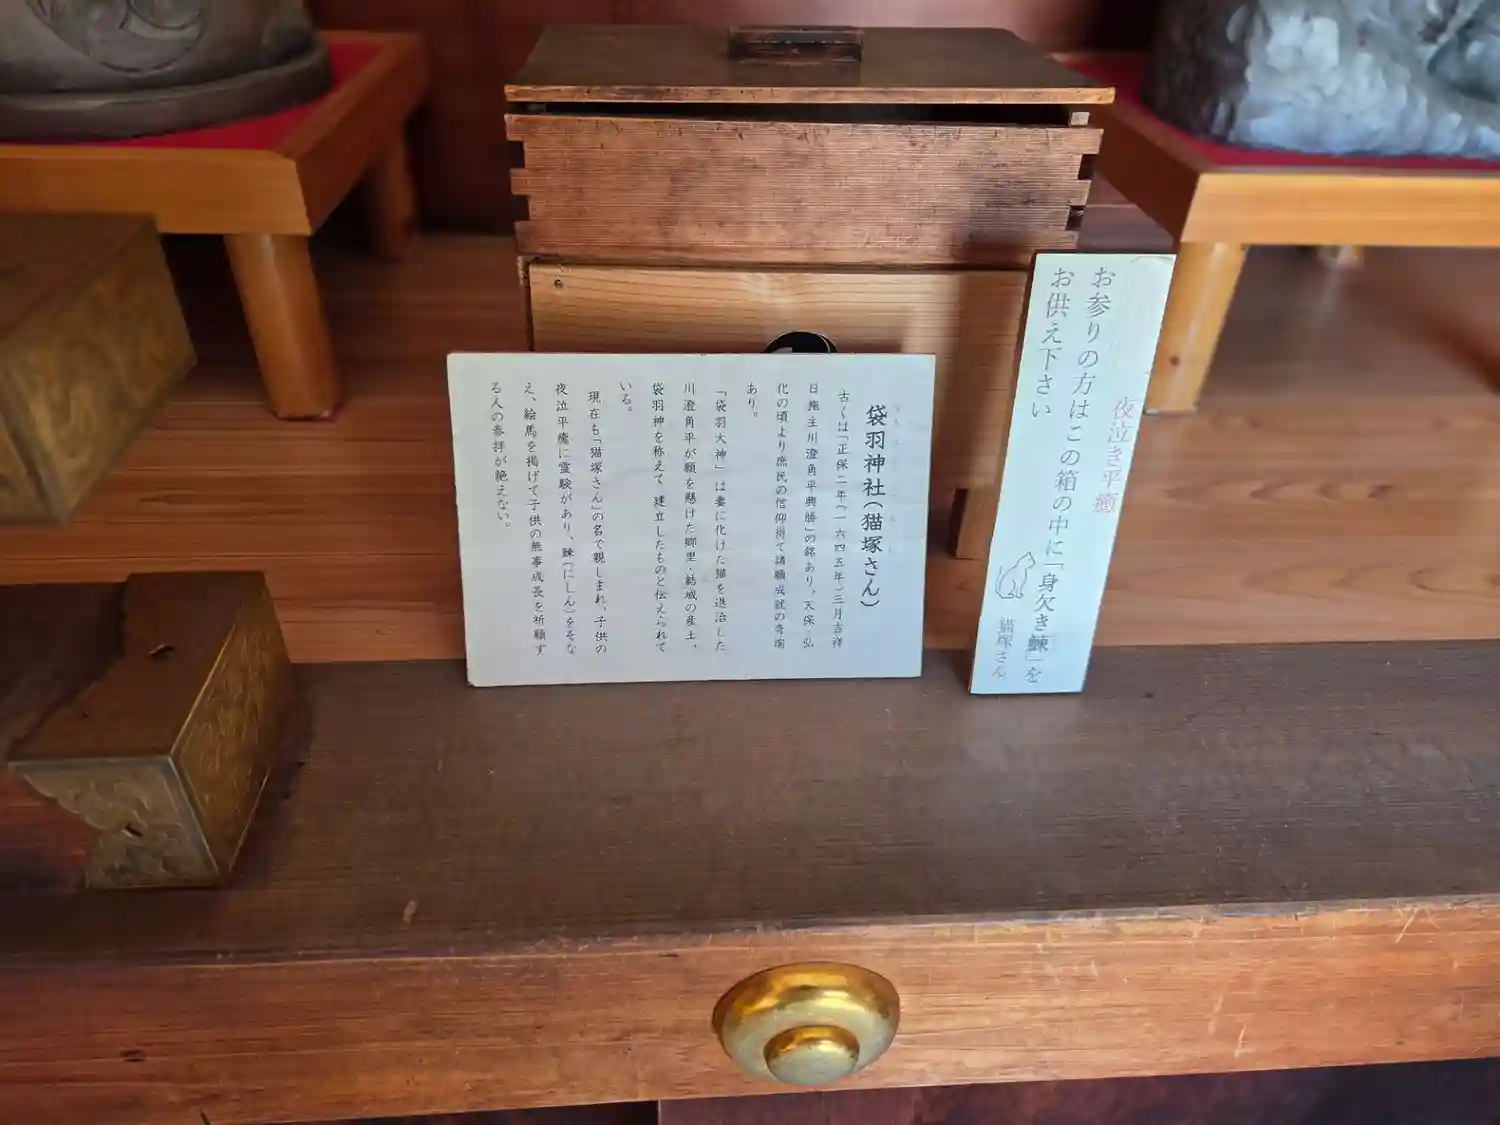 夜泣き平癒
お参りの方はこの箱の中に「身欠き鰊」を
お供え下さい
猫塚さん
袋羽神社(猫塚さん)
古くは「正保二年(一六四五年)三月吉祥
日 施主川澄角平興勝」の銘あり。天保・弘
化の頃より庶民の信仰得て諸願成就の奇瑞
あり。
「袋羽大神」は妻に化けた猫を退治した
川澄角平が願を懸けた郷里・結城の産土、
袋羽神を称えて 建立したものと伝えられて
いる。
現在も「猫塚さん」の名で親しまれ、子供の
夜泣平癒に霊験があり、鰊(にしん)をそな
え、絵馬を掲げて子供の無事成長を祈願す
る人の参拝が絶えない。